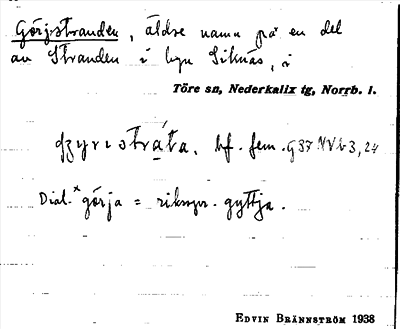 Görjstranden, äldre namn på en del
av Stranden i byn Siknäs, i
Töre sn, Nederkalix tg, Norrb. l.
bf. fem.
Dial. *görja = riksspr. gyttja.
EDVIN BRÄNNSTRÖM 1938